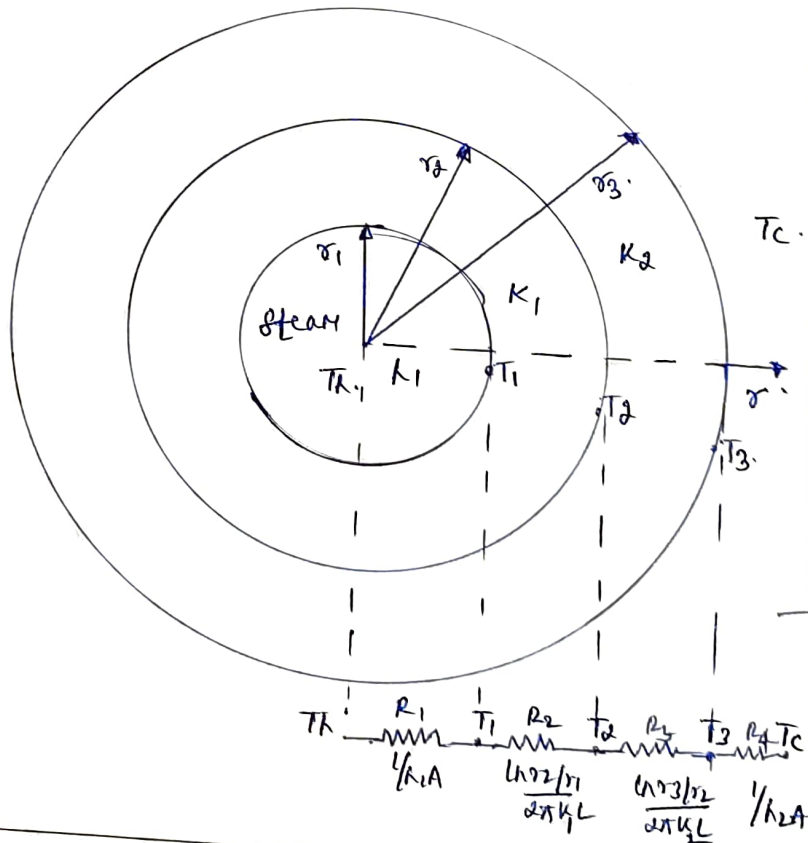 r2
r3.
Tc.
r1
K2
Steam
K1
Th, h1
T1
r.
T2
T3.
Th R1 T1 R2 T2 R3 T3 R4 Tc
1/h1A ln r2/r1 / 2πK1L ln r3/r2 / 2πK2L 1/h2A